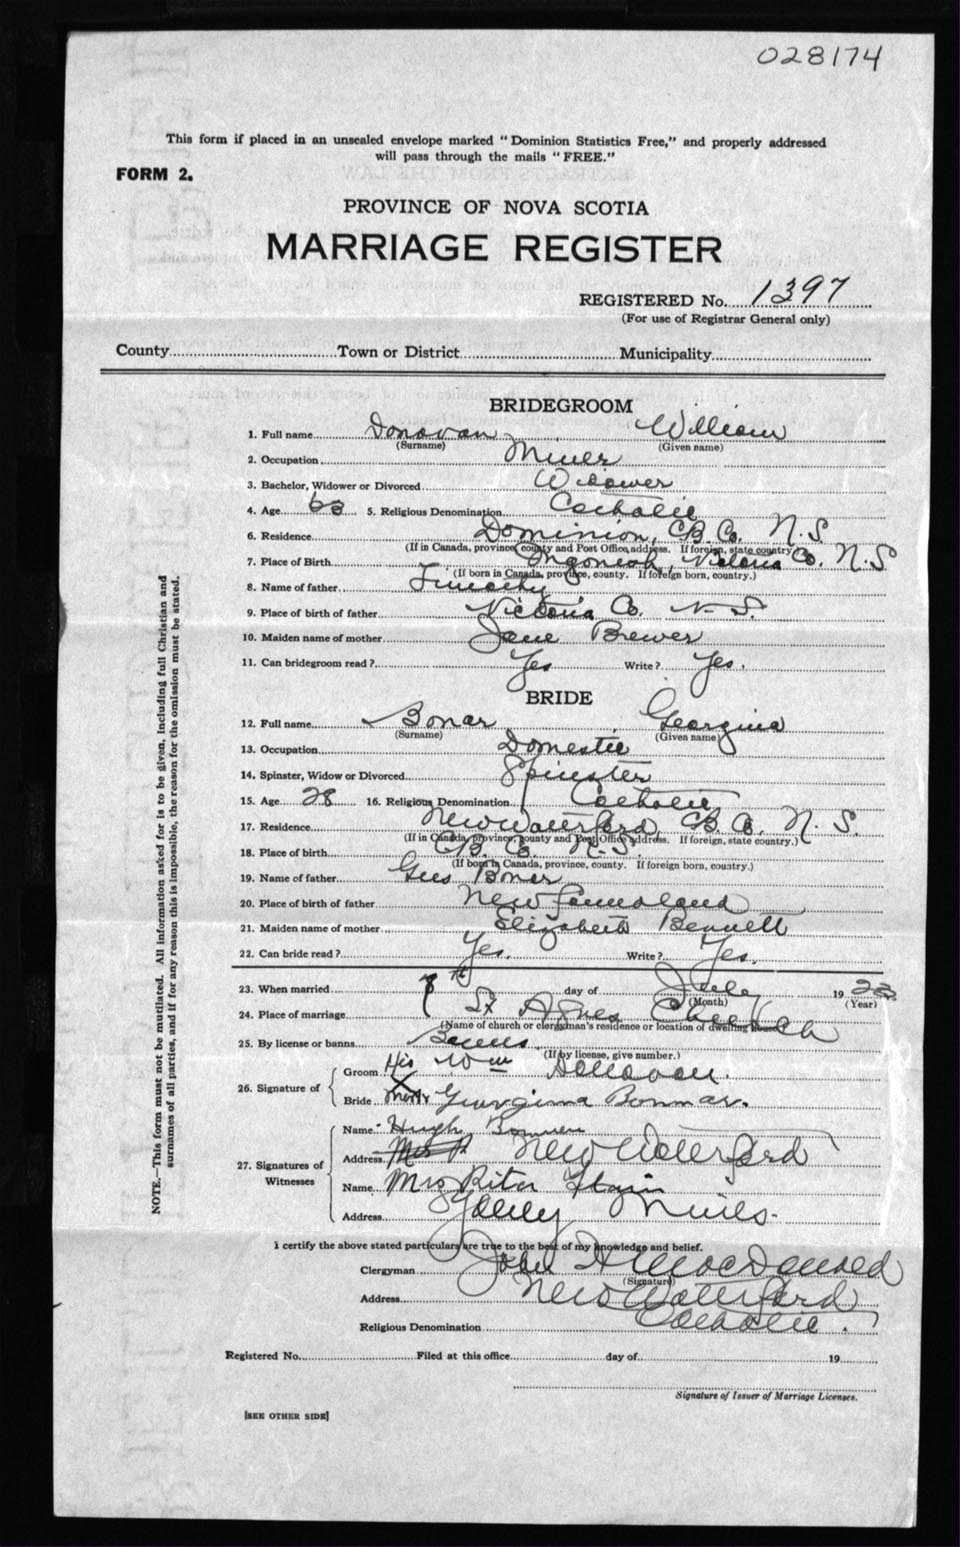 028174
This form if placed in an unsealed envelope marked "Dominion Statistics Free," and properly addressed
will pass through the mails "FREE."
FORM 2.
PROVINCE OF NOVA SCOTIA
MARRIAGE REGISTER
REGISTERED No. 1397
(For use of Registrar General only)
County Town or District Municipality
BRIDEGROOM
1. Full name Donovan William
(Surname) (Given name)
2. Occupation Miner
3. Bachelor, Widower or Divorced Widower
4. Age 63 5. Religious Denomination Catholic
6. Residence Dominion, C.B. Co. N.S
(If in Canada, province, county and Post Office, address. If foreign, state country)
7. Place of Birth Ingonish, Victoria Co. N.S
(If born in Canada, province, county. If foreign born, country.)
8. Name of father Timothy
9. Place of birth of father Victoria Co. N.S.
10. Maiden name of mother Jane Brewer
11. Can bridegroom read? Yes Write? Yes.
BRIDE
12. Full name Bonar Georgina
(Surname) (Given name)
13. Occupation Domestic
14. Spinster, Widow or Divorced Spinster
15. Age 28 16. Religious Denomination Catholic
17. Residence New Waterford, C.B. Co. N.S.
(If in Canada, province, county and Post Office address. If foreign, state country.)
18. Place of birth C.B. Co. N.S.
(If born in Canada, province, county. If foreign born, country.)
19. Name of father Bonar
20. Place of birth of father Newfoundland
21. Maiden name of mother Elizabeth Bennett
22. Can bride read? Yes. Write? Yes.
23. When married 7th day of July 19
(Month) (Year)
24. Place of marriage St Agnes Church
(Name of church or clergyman's residence or location of dwelling house)
25. By license or banns Banns
(If by license, give number.)
26. Signature of
Groom His Wm X Donovan.
Bride Mark Georgina Bonnar.
27. Signatures of
Witnesses
Name Hugh
Address New Waterford
Name Mrs Rita
Address Mines.
I certify the above stated particulars are true to the best of my knowledge and belief.
Clergyman John H MacDonald
(Signature)
Address New Waterford
Religious Denomination Catholic.
Registered No. Filed at this office day of 19
Signature of Issuer of Marriage Licenses.
[SEE OTHER SIDE]
NOTE.—This form must not be mutilated. All information asked for is to be given, including full Christian and
surnames of all parties, and if for any reason this is impossible, the reason for the omission must be stated.